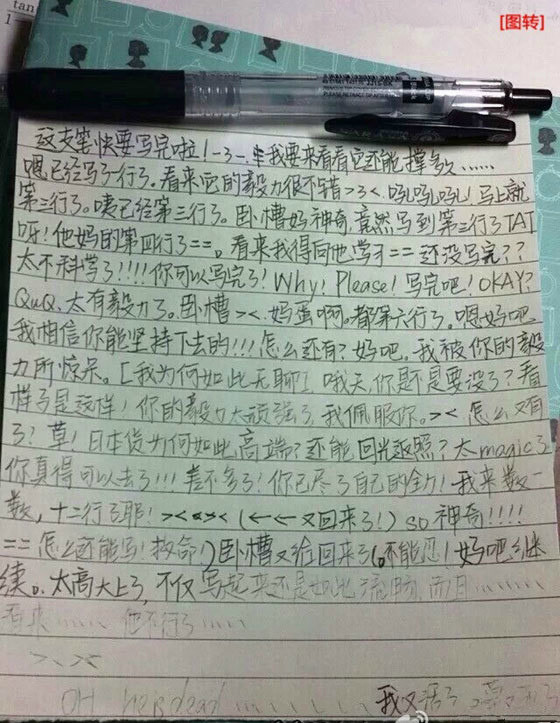 [图转]
tan
1
这支笔快要写完啦！-3- 我要来看看它还能撑多久……
嗯已经写了一行了。看来它的毅力很不错>3<。吼吼吼！马上就
第三行了。咦已经第三行了。卧槽好神奇竟然写到第三行了TAT
呀！他妈的第四行了==。看来我得向他学习==还没写完??
太不科学了!!!!你可以写完了！Why！Please！写完吧！OKAY？
QuQ、太有毅力了。卧槽><。妈蛋啊。都第六行了。嗯好吧
我相信你能坚持下去的!!!怎么还有？好吧。我被你的毅
力所惊呆。[我为何如此无聊] 哦天，你是不是要没了？看
样子是这样！你的毅力太顽强了，我佩服你。>< 怎么又有
了？草！日本货为何如此高端？还能回光返照？太magic了
你真得可以去了!!!差不多了！你已尽了自己的全力！我来数一
数，十二行了耶！><«»< (←←又回来了！) so 神奇!!!!
==怎么还能写！救命！)卧槽又给回来了(不能忍！好吧继
续。太高大上了，不仅写起来还是如此流畅，而且……
看来…… 他不行了……
>、<
OH he is dead …… 我又活了